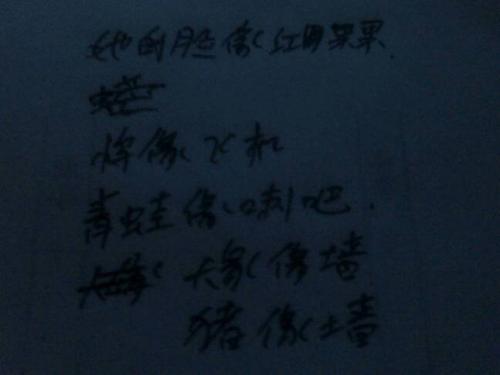 她的脸像红果.
像飞机
青蛙像喇吧.
大象像墙
猪像墙